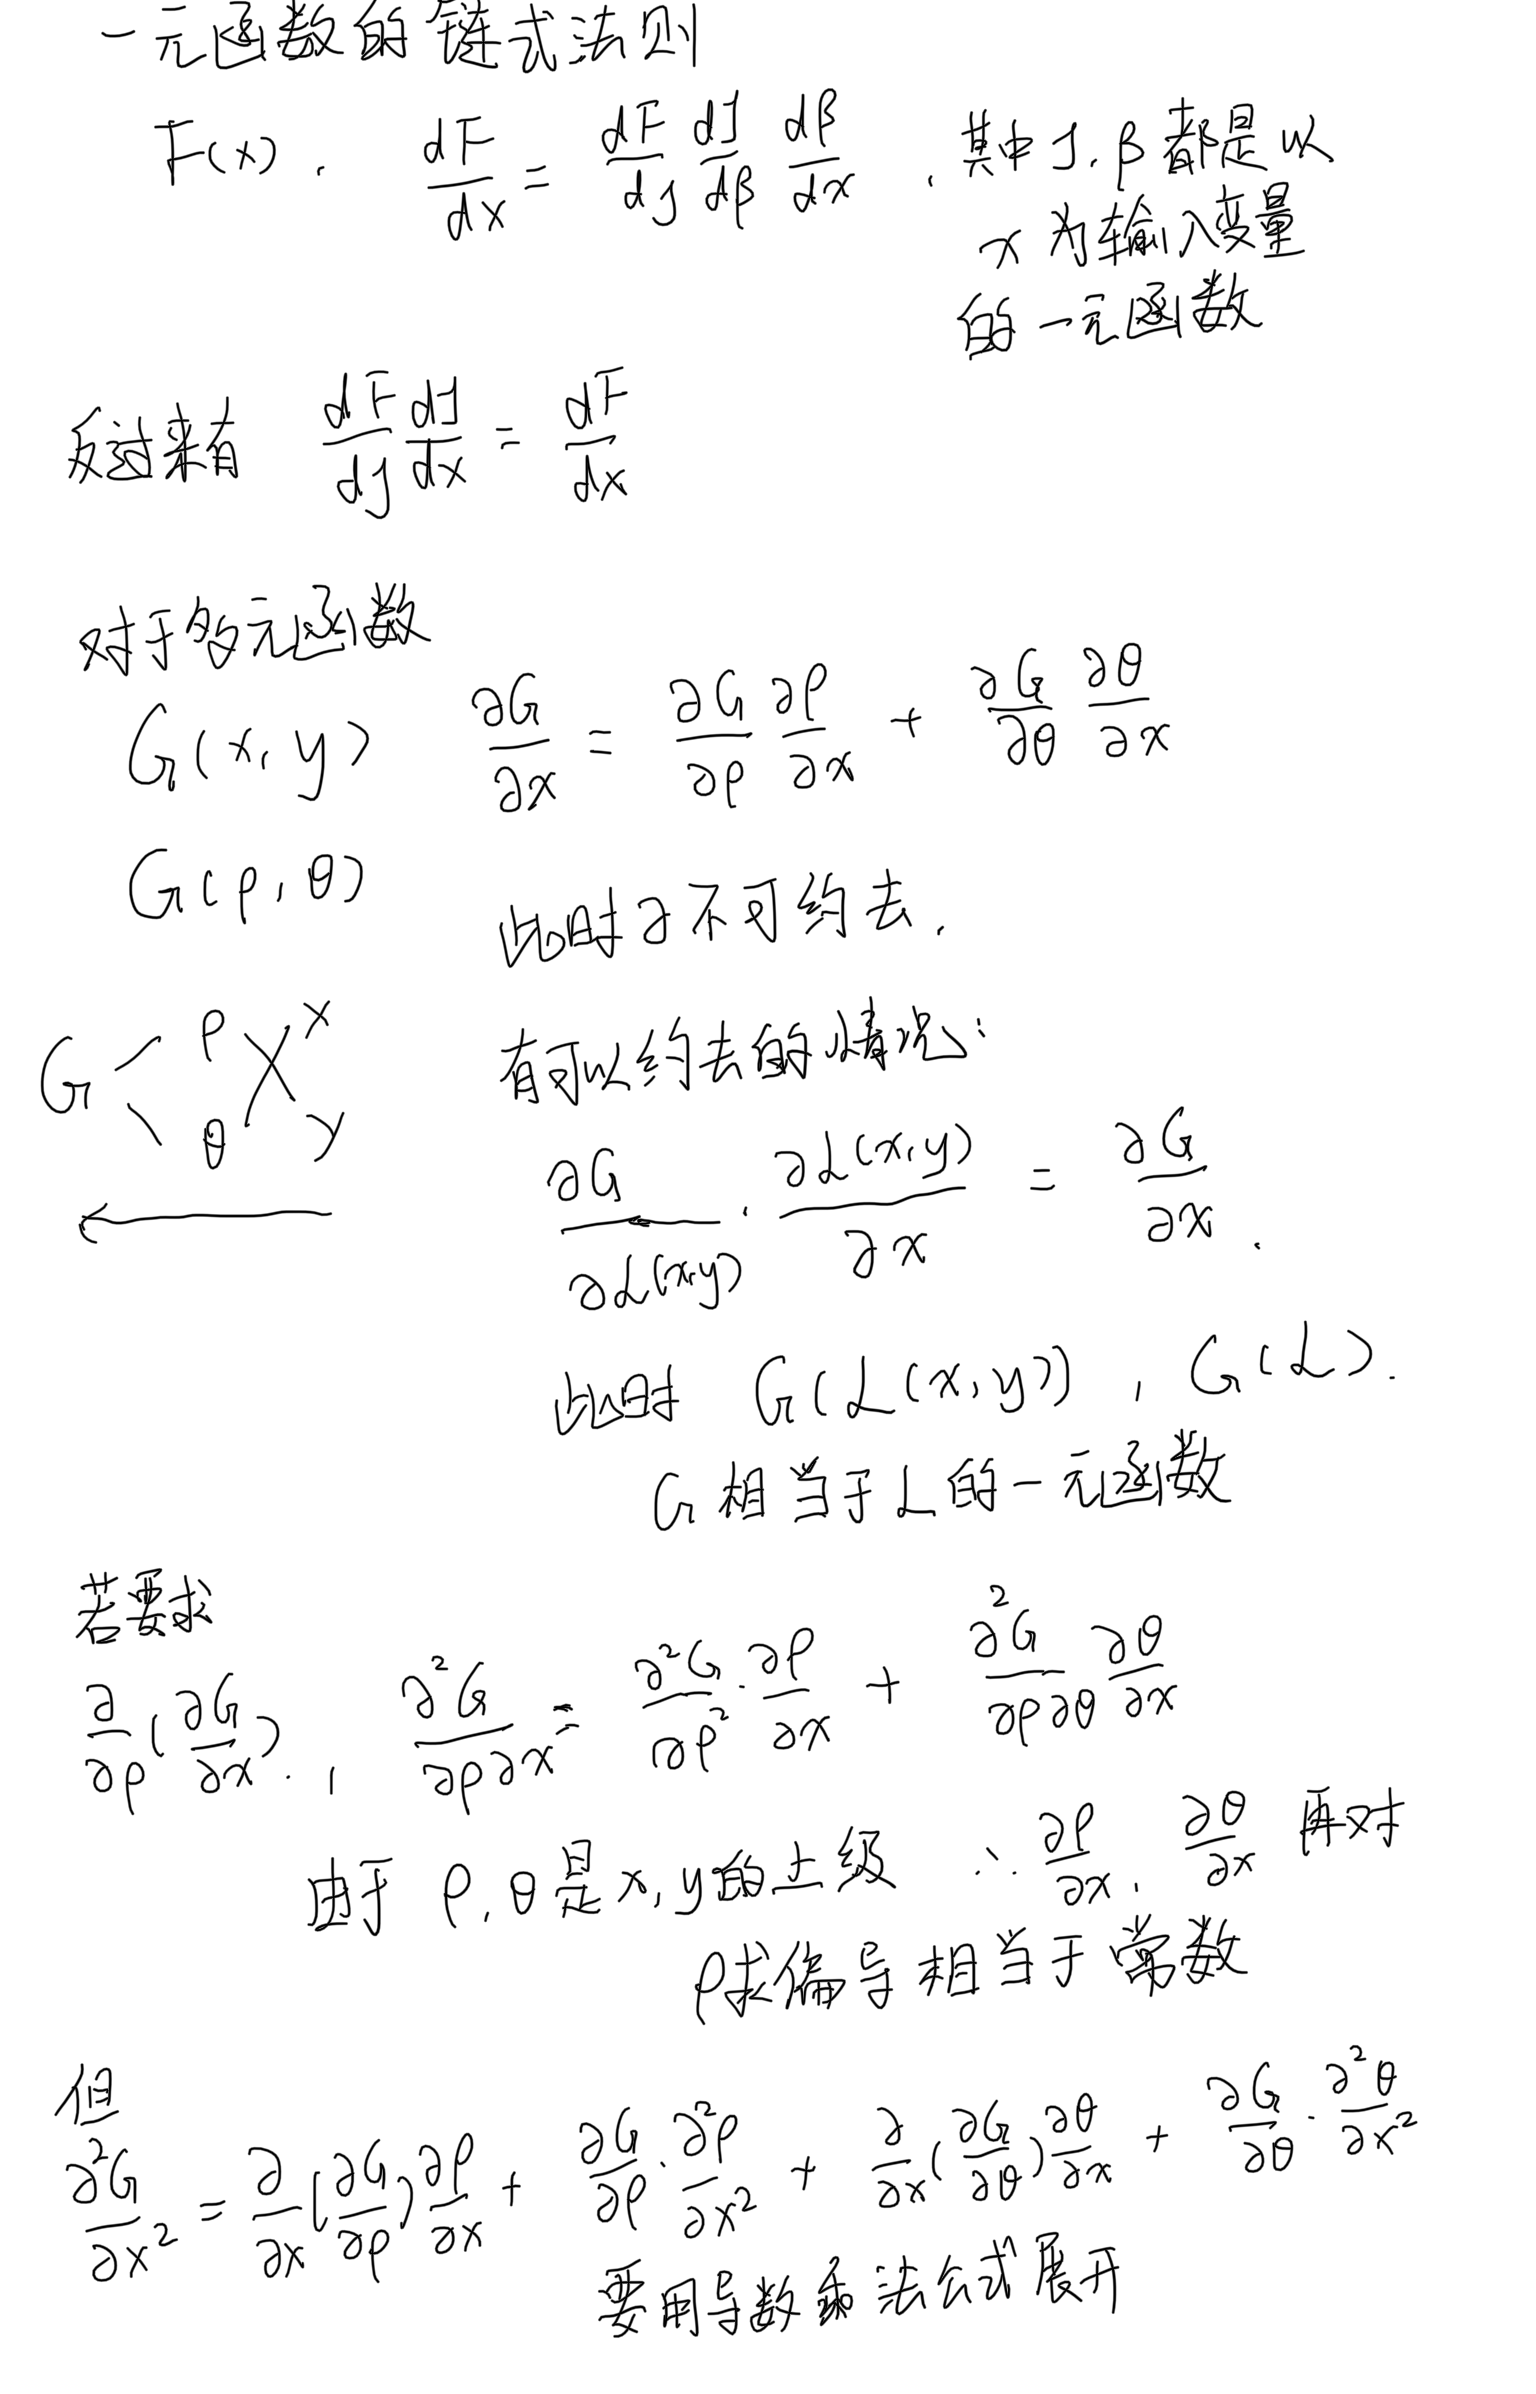 一元函数的链式法则
F(x). dF/dx = dF/dg dg/dβ dβ/dx . 其中 g, β 都是以
x 为输入变量
的一元函数
反过来有 dF/dg dg/dx = dF/dx
对于多元函数
G(x, y) ∂G/∂x = ∂G/∂ρ ∂ρ/∂x + ∂G/∂θ ∂θ/∂x
G(ρ, θ)
此时 ∂ 不可约去.
G < ρ θ X x y
有可以约去的情况:
∂G/∂L(x,y) · ∂L(x,y)/∂x = ∂G/∂x .
此时 G(L(x,y)), G(L).
G 相当于 L 的一元函数
若要求
∂/∂ρ(∂G/∂x). , ∂²G/∂ρ∂x = ∂²G/∂ρ² · ∂ρ/∂x + ∂²G/∂ρ∂θ ∂θ/∂x
由于 ρ, θ 是 x, y 的上级 ∴ ∂ρ/∂x, ∂θ/∂x 再对
ρ求偏导相当于常数
但
∂²G/∂x² = ∂/∂x(∂G/∂ρ)∂ρ/∂x + ∂G/∂ρ · ∂²ρ/∂x² + ∂/∂x(∂G/∂θ)∂θ/∂x + ∂G/∂θ · ∂²θ/∂x²
要用导数乘法公式展开